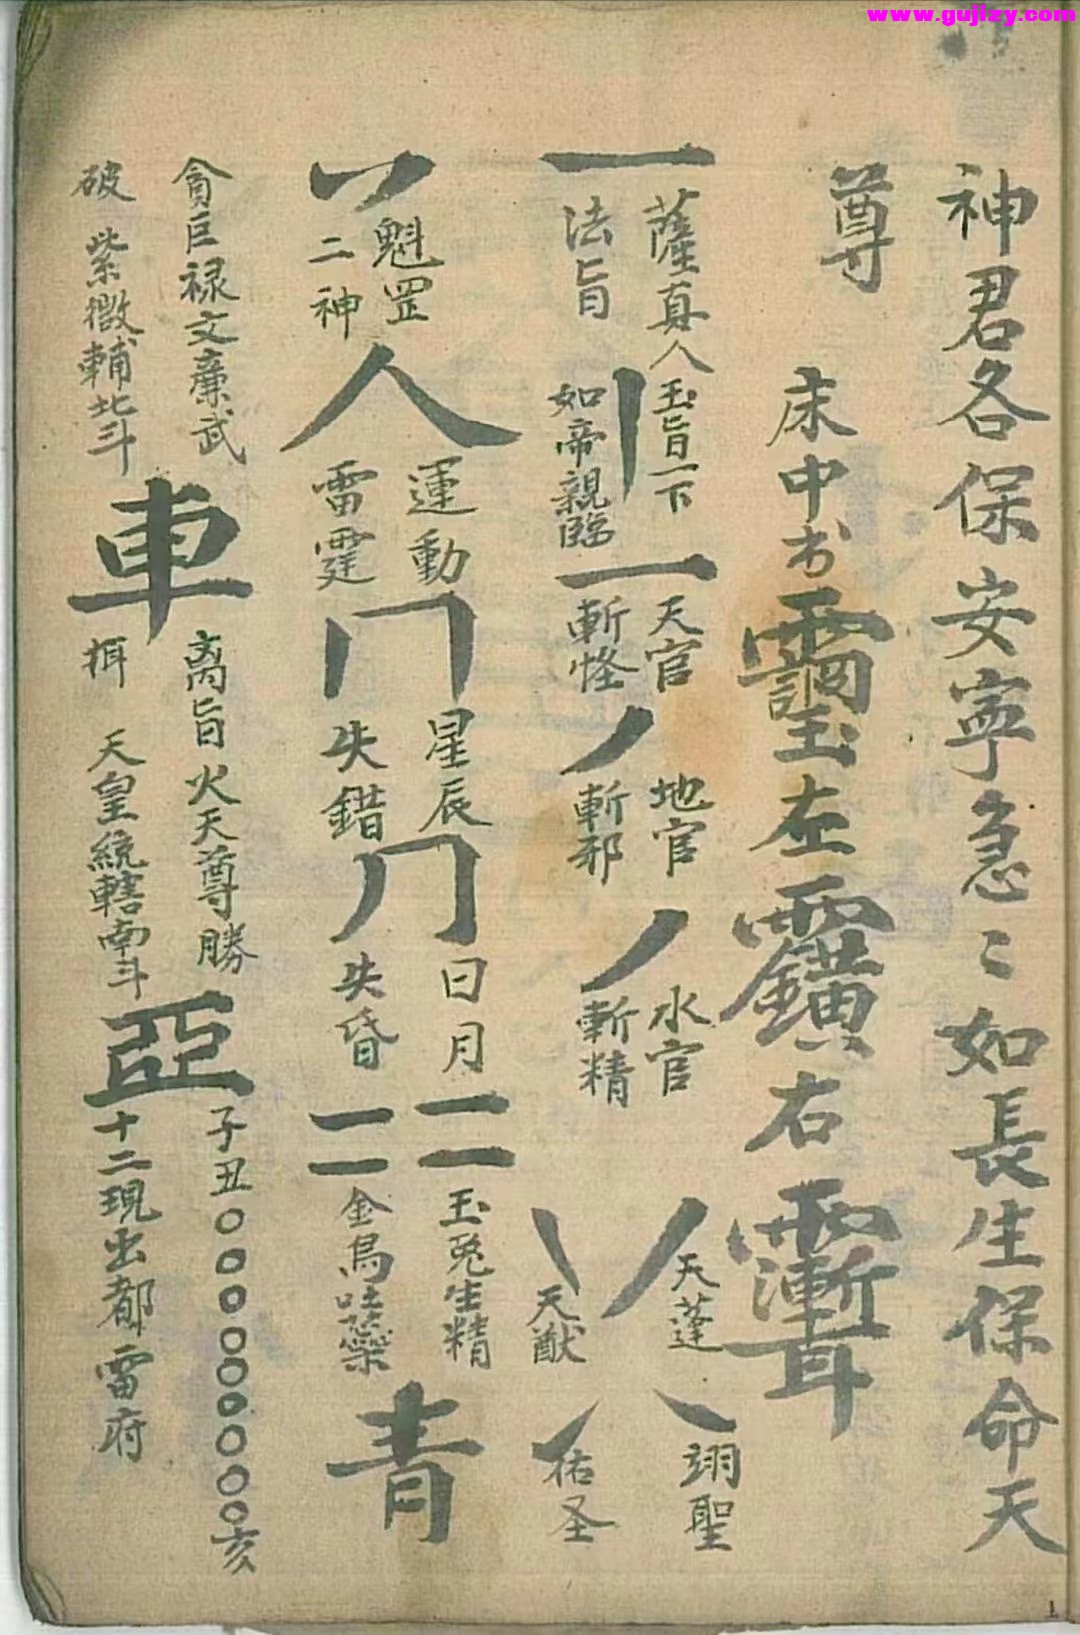 www.gujizy.com
神君各保安寧急〻如長生保命天
尊
床中书
玉左
右
一 薩真人
法旨
丨 玉旨一下
如帝親臨
一 天官
斬怪
丿 地官
斬邪
丿 水官
斬精
天蓬
天猷
翊聖
佑圣
魁罡
二神
人 運動
雷霆
星辰
失錯
日月
失昏
二 二 玉兎生精
金烏吐藥
青
貪巨禄文廉武
破 紫微輔北斗
車 离旨火天尊勝
天皇統轄南斗
亞 子丑〇〇〇〇〇〇〇〇〇亥
十二現出都雷府
1